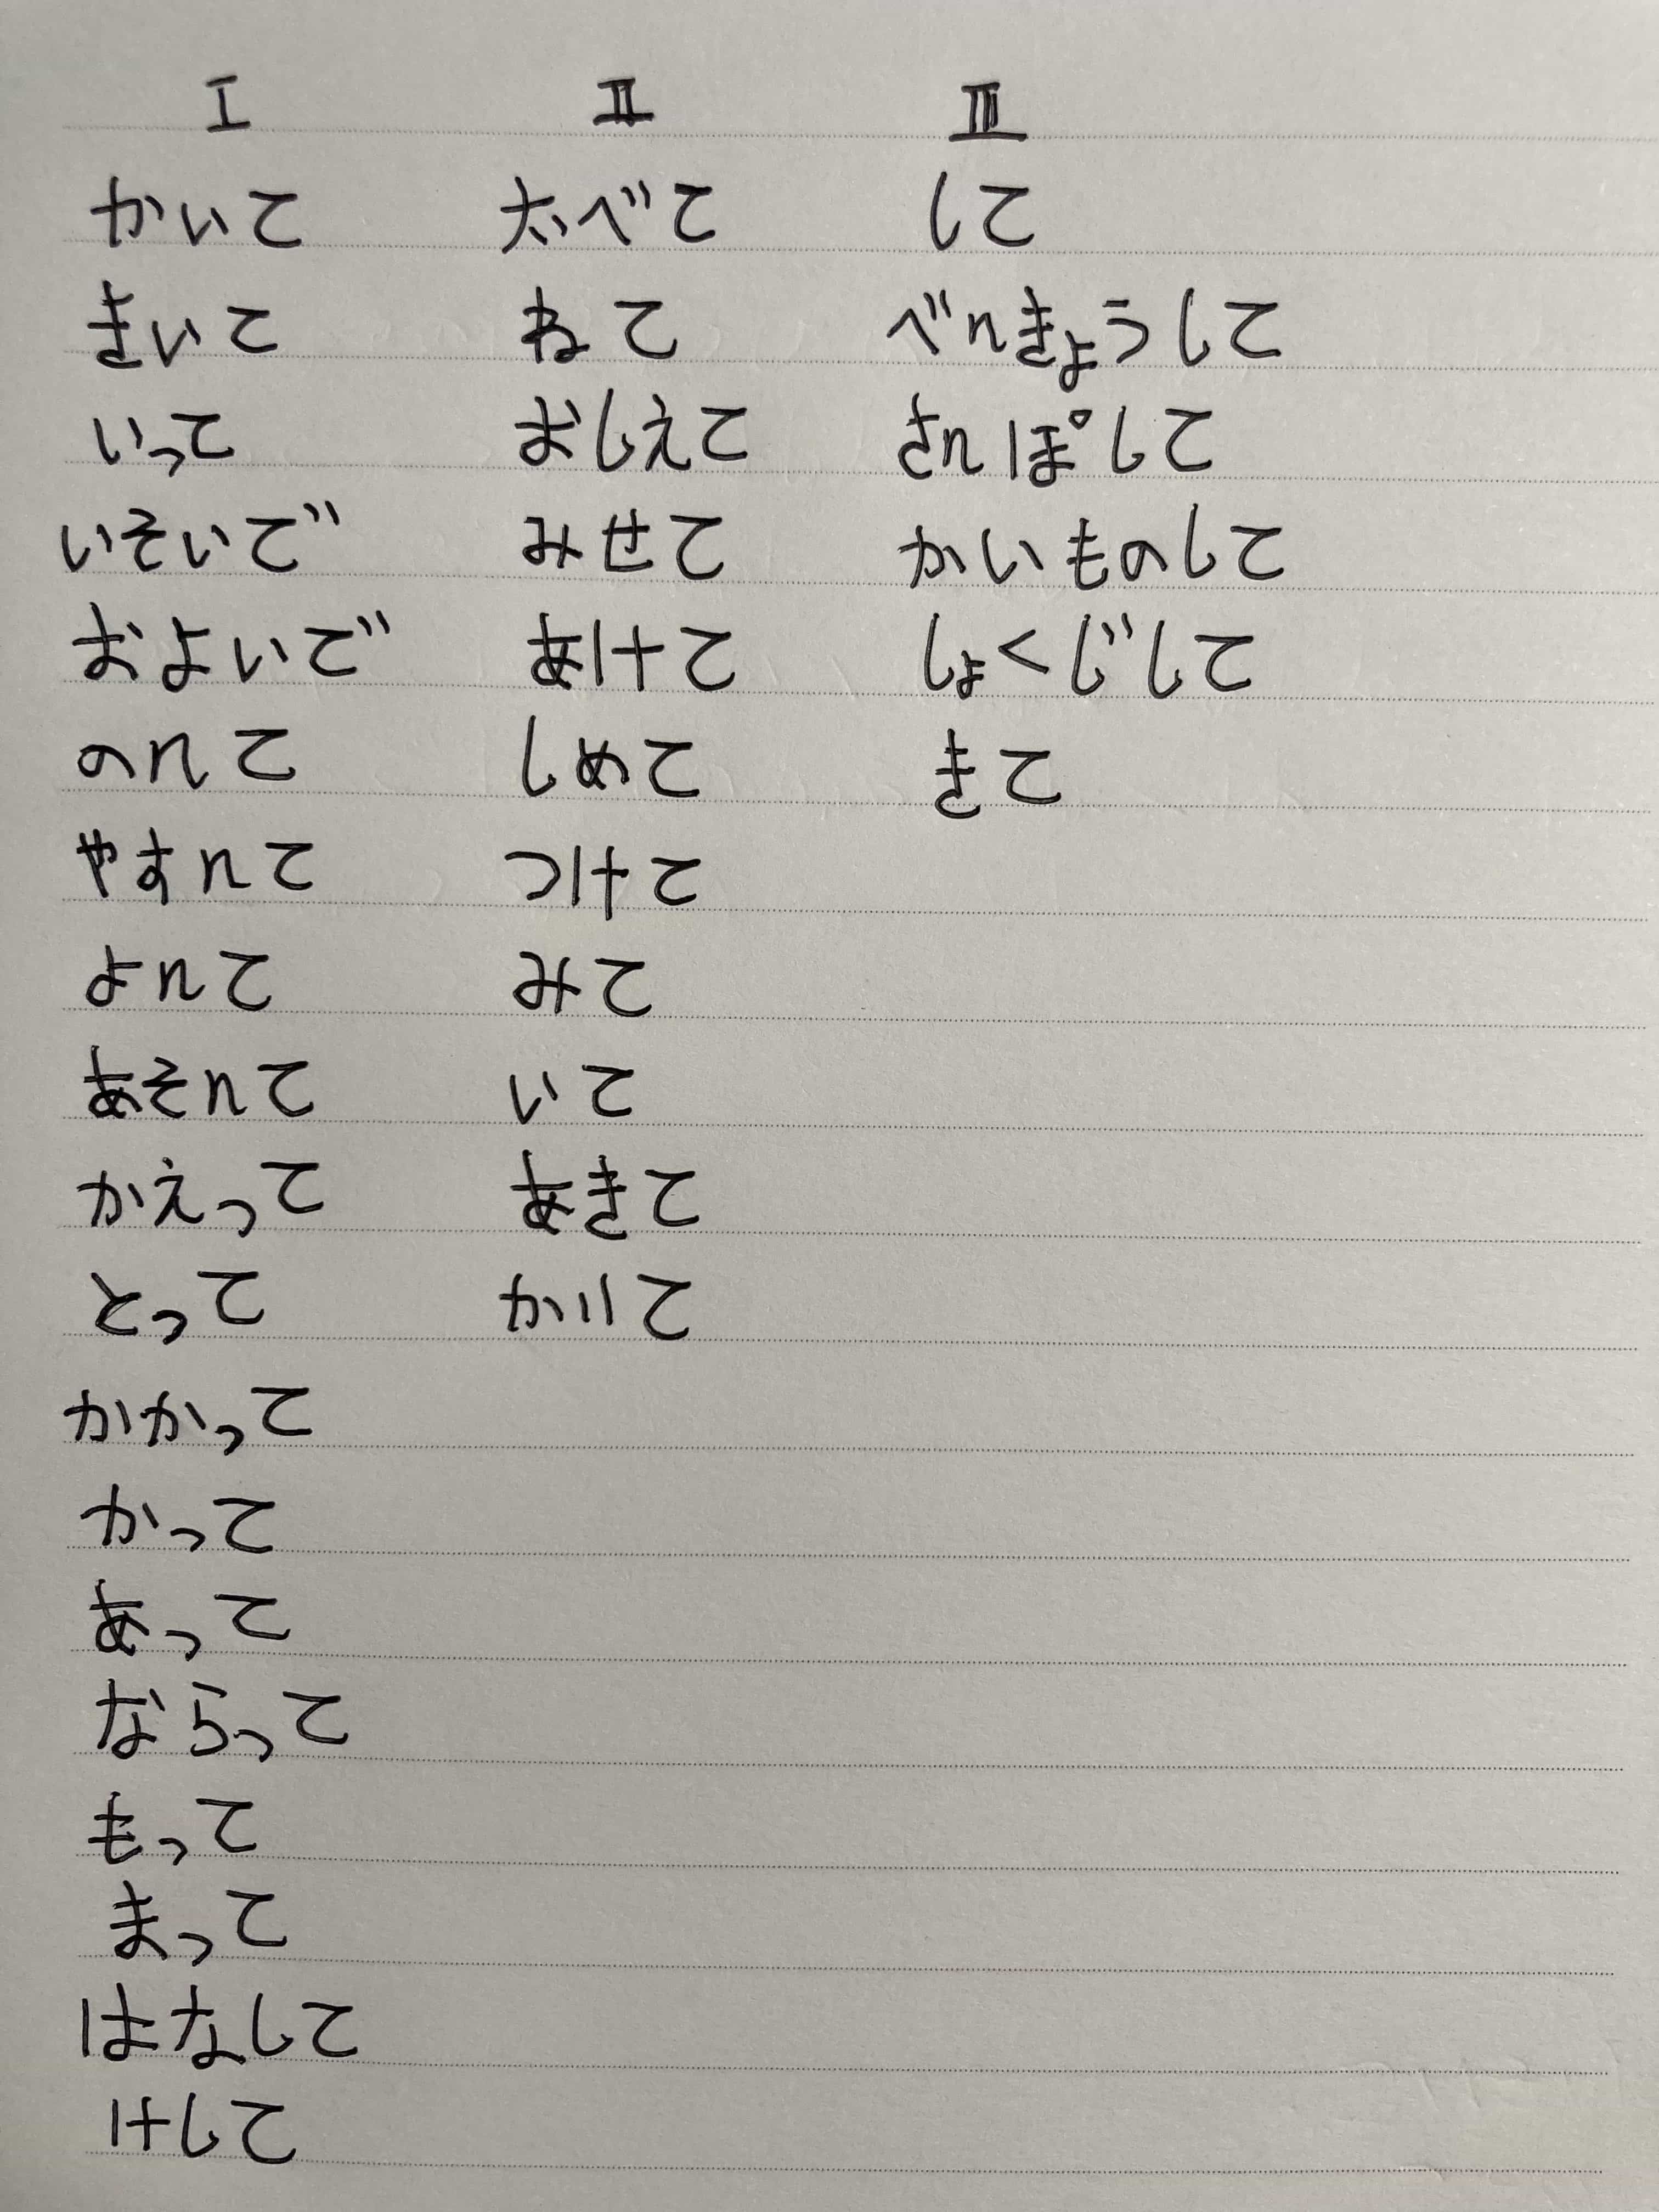 I
かいて
きいて
いって
いそいで
およいで
のんて
やすんて
よんて
あそんて
かえって
とって
かかって
かって
あって
ならって
もって
まって
はなして
けして
II
たべて
ねて
おしえて
みせて
あけて
しめて
つけて
みて
いて
あきて
かりて
III
して
べんきょうして
さんぽして
かいものして
しょくじして
きて